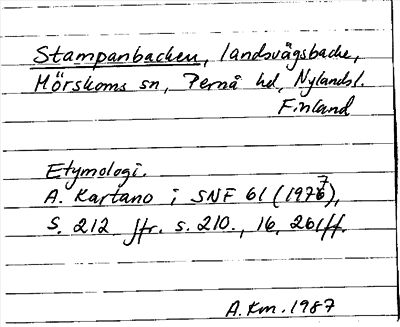 Stampanbacken, landsvägsbacke,
Mörskoms sn, Pernå hd, Nylands l.
Finland
Etymologi.
A. Kartano i SNF 61 (1977),
s. 212 jfr. s. 210., 16, 261ff.
A.Km. 1987